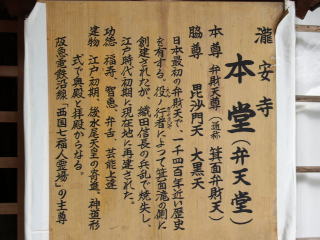 瀧安寺
本堂(弁天堂)
本尊 弁財天尊(通称 箕面弁財天)
脇尊 毘沙門天 大黒天
日本最初の弁財天で、一千四百年近い歴史
を有する。役ノ行者によって箕面滝の側に
創建されたが、織田信長の兵乱で焼失し、
江戸時代初期に現在地に再建された。
功徳 福寿、智恵、弁舌、芸能上達
建物 江戸初期、後水尾天皇の寄進、神並形
式で奥殿と拝殿からなる。
阪急電鉄沿線「西国七福人霊場」の主尊